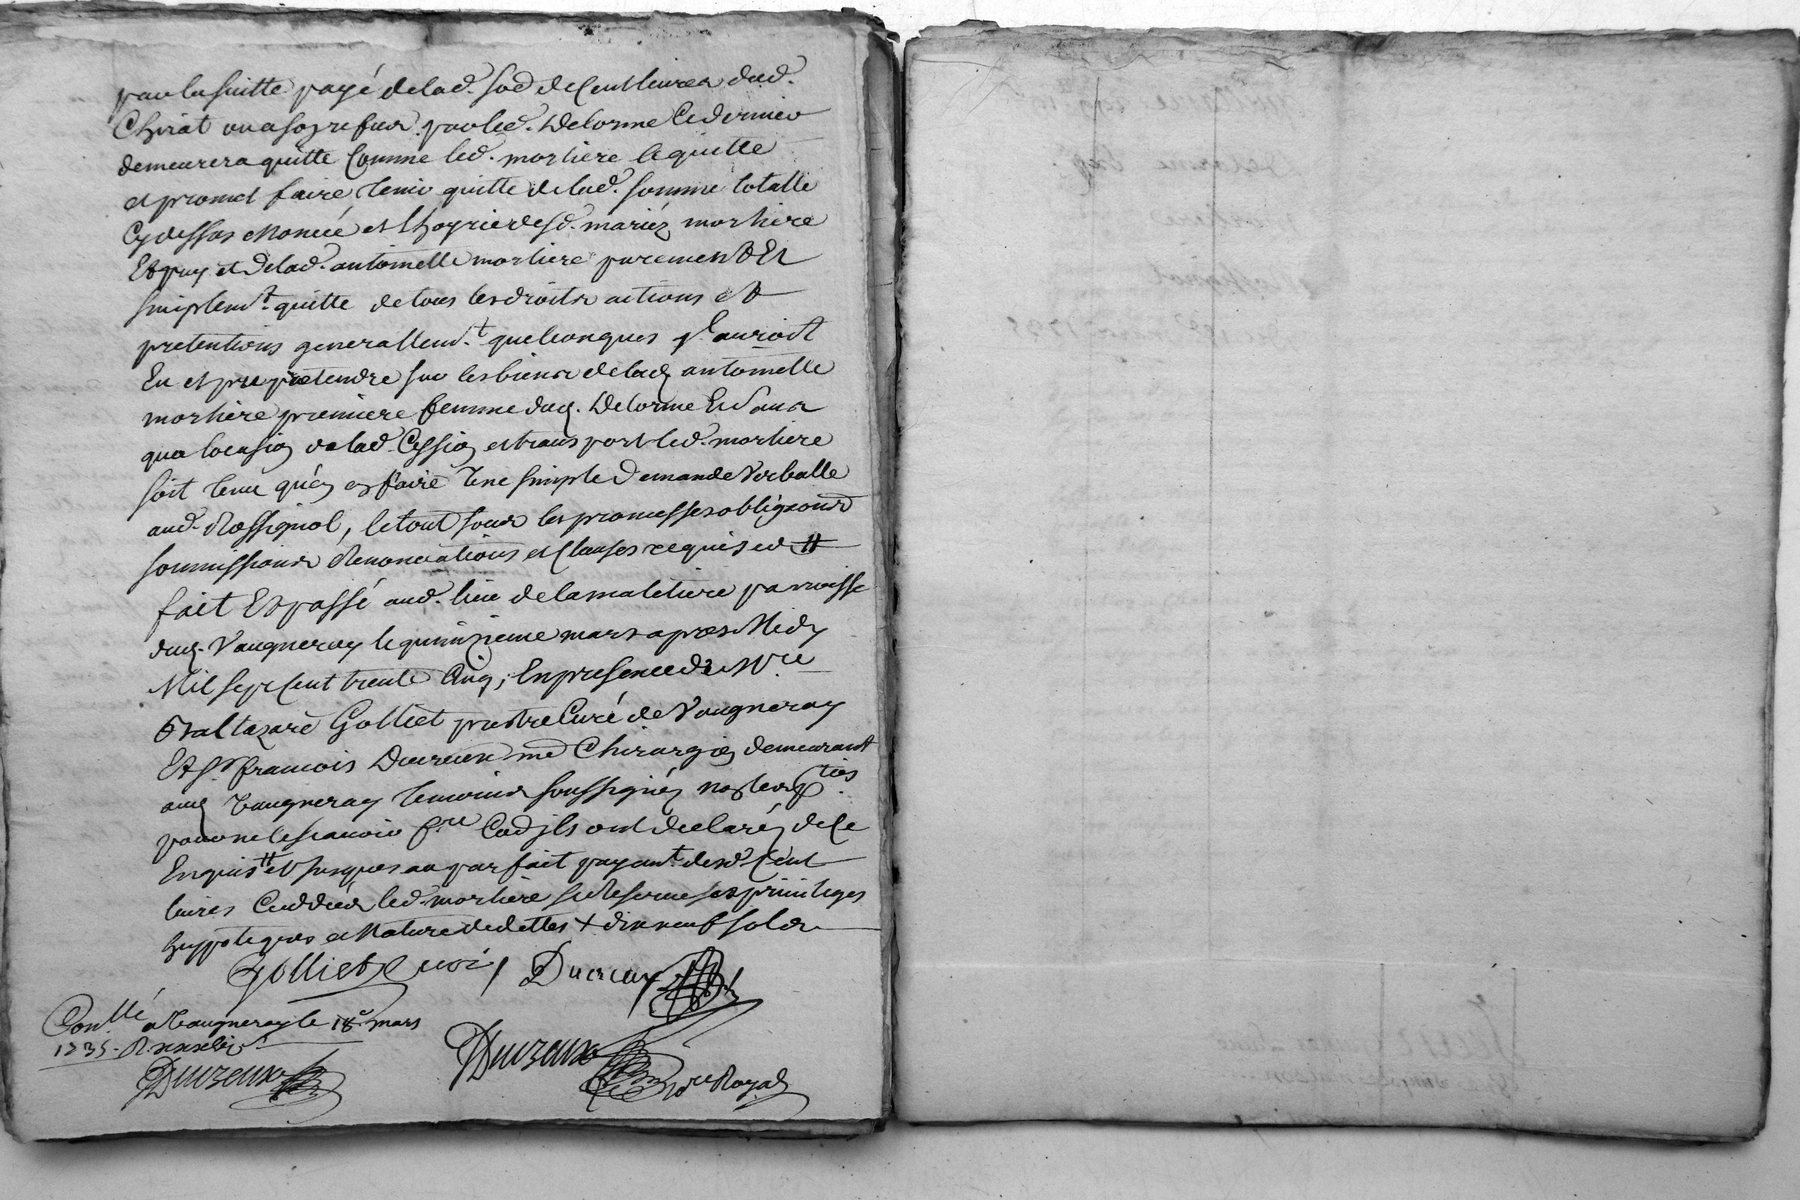 par la suitte payé de lad. so.e de Cent livres dud.
Chirat ou a son refus par led. Delorme Ce dernier
demeurera quitte Comme led. morliere le quitte
et promet faire tenir quitte de lad. somme totalle
Cy dessus enoncé et l'hoyrie desd. mariéz morliere
Et puy et de lad. antoinette morliere purement Et
simplem.t quitte de tous les droits actions et
pretentions generallem.t quelconques qu'il auroit
Eu et pu pretendre sur les biens de lad. antoinette
morliere premiere femme dud. Delorme Et sans
qua locasion de lad. Cession et transport led. morliere
soit tenu qu'a en faire une simple Demande Verballe
aud. Rossignol, le tout sous les promesses obligaons
soumissions Renonciations et Clauses requises #
fait Et passé aud. lieu de la maletiere parroisse
dud. Vaugneray le quinzieme mars apres Midy
Mil sept Cent trente Cinq, En presence de M.re
Baltazare Golliet prestre Curé de Vaugneray
Et s.r francois Ducreux me Chirurgien demeurant
aud. Vaugneray temoins soussignéz non les p.ties
pour ne le scavoir f.re Co.e ils ont declaréz de Ce
Enquis # et jusques au parfait payem.t desd. Cent
livres led. morliere se Reserve ses privileges
hyppoteques et Nature de dettes + dix neuf sols
Golliet Curé Ducreux
Con.llé a Vaugneray le 18e mars
1735. R.
Ducreux
Ducreux
No.re Royal